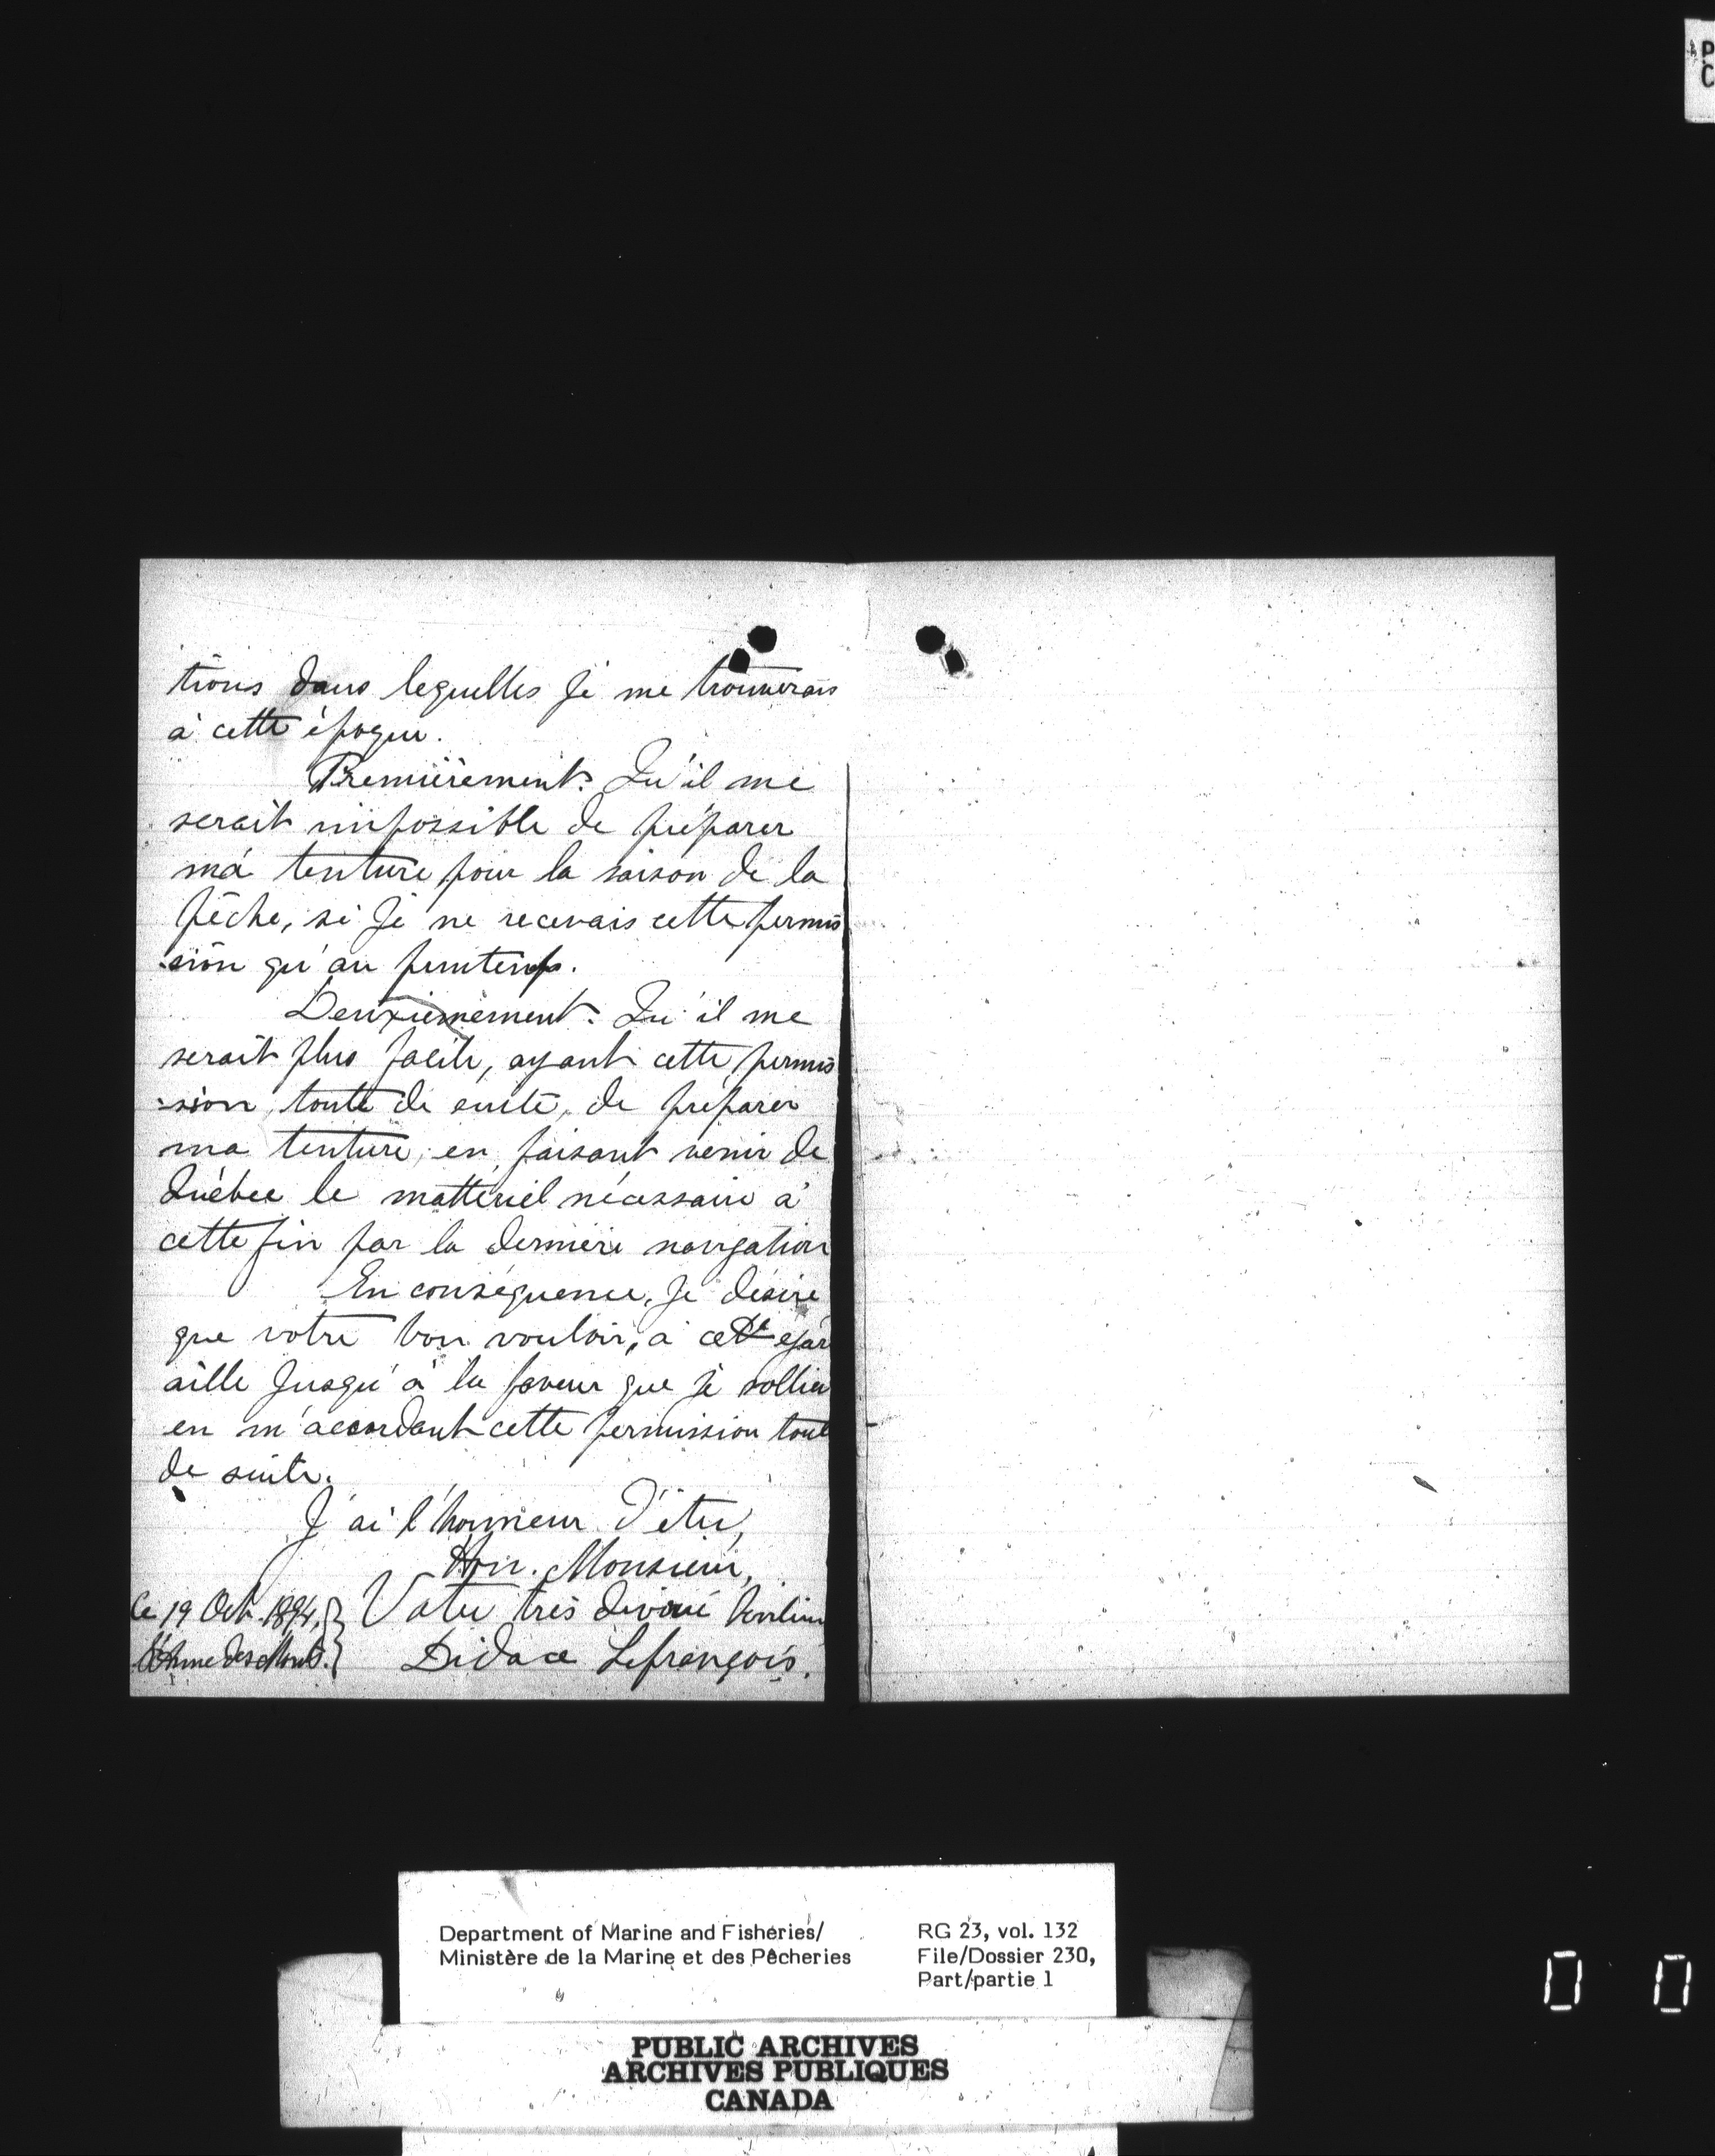 tions dans lequelles je me trouverais
à cette époque.
Premièrement. Qu'il me
serait impossible de préparer
ma tenture pour la saison de la
pêche, si je ne recevais cette permis
sion qu'au printemps.
Deuxièmement. Qu'il me
serait plus facile, ayant cette permis
-sion, toute de suite, de préparer
ma tenture, en faisant venir de
Québec le matteriel nécessaire à
cette fin par la dernière navigation
En conséquence, je désire
que votre bon vouloir, à cette égar
aille jusqu'à la faveur que je sollici
en m'accordant cette permission tout
de suite.
J'ai l'honneur d'être,
Hon. Monsieur,
Ce 19 Oct. 1894, Votre très dévoué
Ste Anne des Monts. Didace Lefrançois.
Department of Marine and Fisheries/
Ministère de la Marine et des Pêcheries
RG 23, vol. 132
File/Dossier 230,
Part/partie 1
PUBLIC ARCHIVES
ARCHIVES PUBLIQUES
CANADA
P
C
0 0